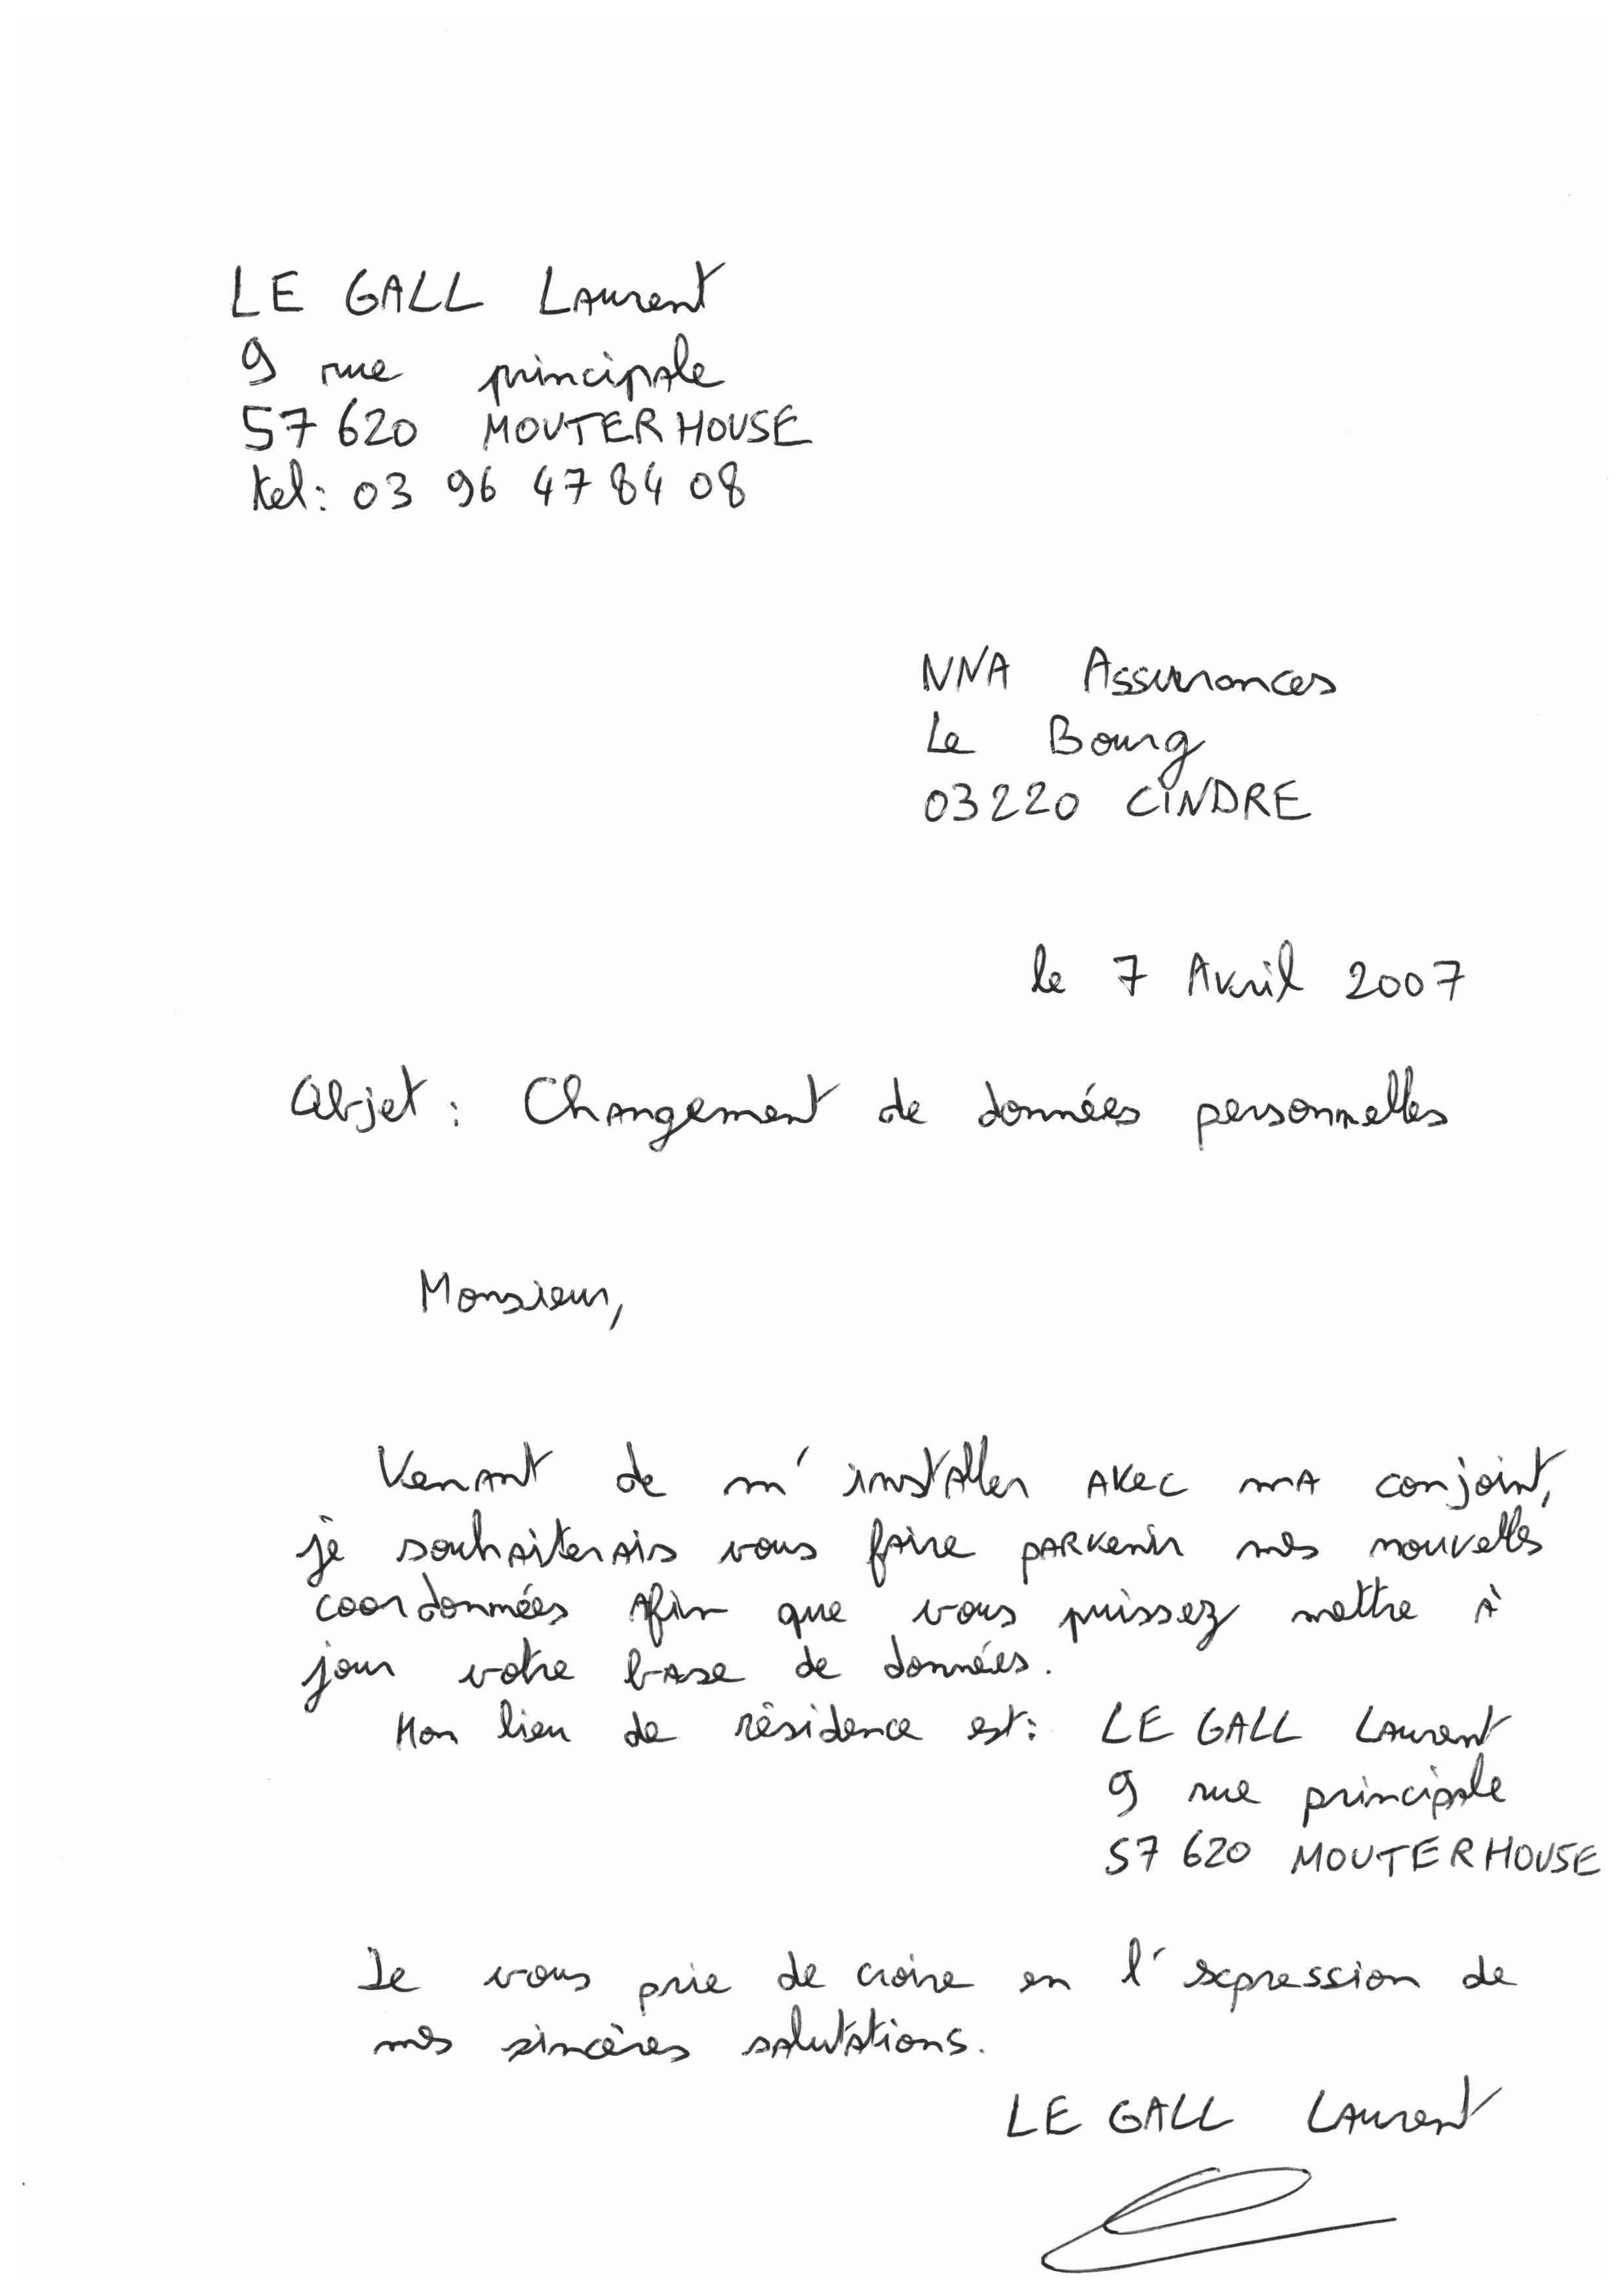 LE GALL Laurent
9 rue principale
57 620 MOUTERHOUSE
tel: 03 96 47 84 08
NNA Assurances
Le Bourg
03220 CINDRE
le 7 Avril 2007
Objet : Changement de données personnelles
Monsieur,
Venant de m'installer avec ma conjoint,
je souhaiterais vous faire parvenir mes nouvelles
coordonnées afin que vous puissez mettre à
jour votre base de données.
Mon lieu de résidence est: LE GALL Laurent
9 rue principale
57 620 MOUTERHOUSE
Je vous prie de croire en l'expression de
mes sincères salutations.
LE GALL Laurent